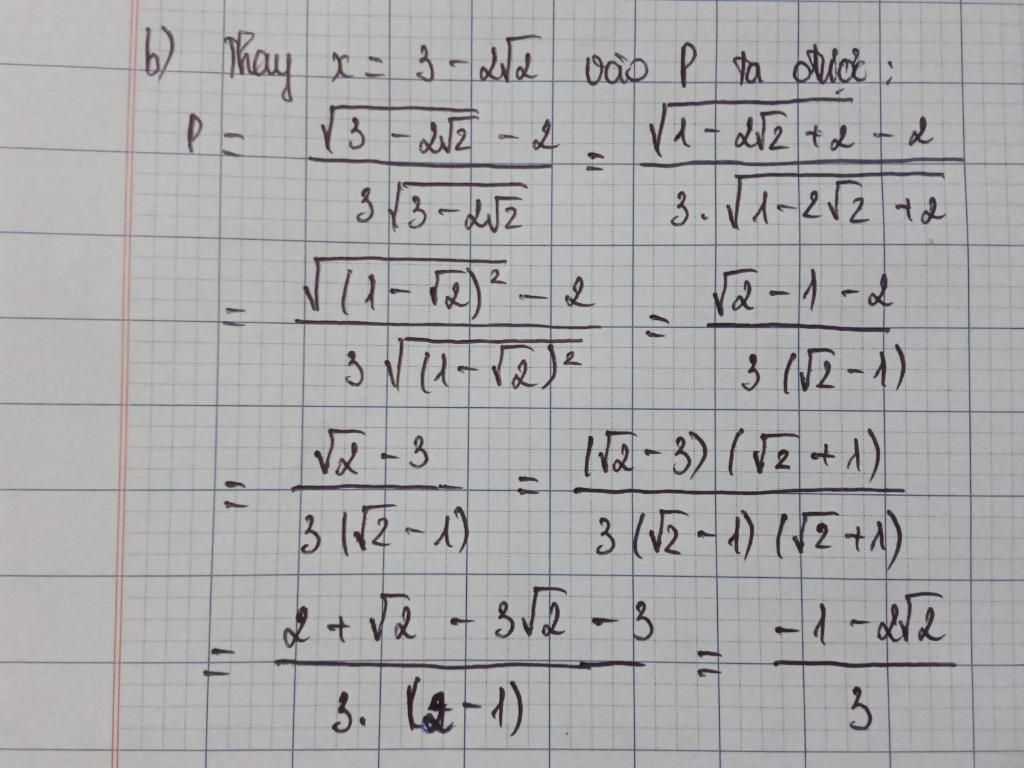 b) Thay x = 3 - 2√2 vào P ta được :
P = (√(3 - 2√2) - 2) / (3√(3 - 2√2)) = (√(1 - 2√2 + 2) - 2) / (3. √(1 - 2√2 + 2))
= (√((1 - √2)²) - 2) / (3√((1 - √2)²)) = (√2 - 1 - 2) / (3(√2 - 1))
= (√2 - 3) / (3(√2 - 1)) = ((√2 - 3)(√2 + 1)) / (3(√2 - 1)(√2 + 1))
= (2 + √2 - 3√2 - 3) / (3. (2 - 1)) = (-1 - 2√2) / 3